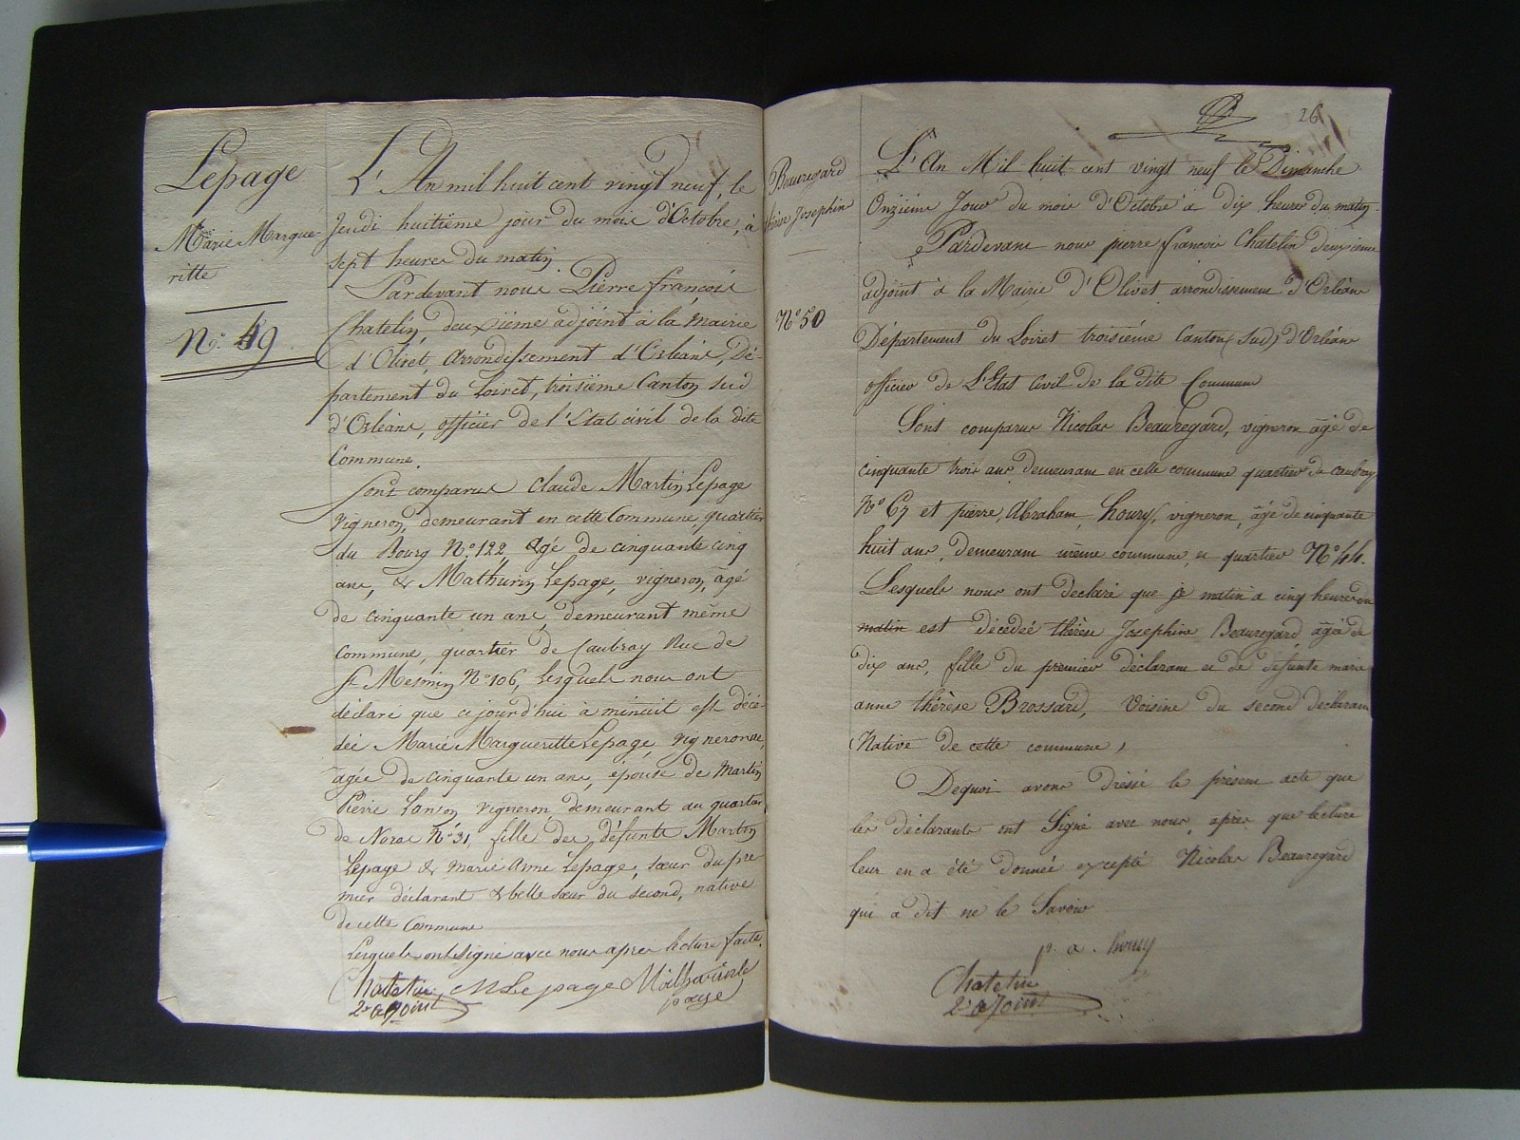 Lepage
Marie Margue-
ritte
N.° 49
L'An mil huit cent vingt neuf, le
Jeudi huitième jour du mois d'Octobre, à
sept heures du matin.
Pardevant nous Pierre françois
Chatelin, deuxième adjoint à la Mairie
d'Olivet, Arrondissement d'Orléans, Dé-
partement du Loiret, troisième Canton sud
d'Orléans, officier de l'Etat civil de la dite
Commune.
Sont comparus Claude Martin Lepage
vigneron, demeurant en cette Commune, quartier
du Bourg N° 122 Agé de cinquante cinq
ans, & Mathurin Lepage, vigneron, âgé
de cinquante un ans, demeurant même
Commune, quartier de Caubray Rue de
St Mesmin N° 106, Lesquels nous ont
déclaré que cejourd'hui à minuit est décé-
dée Marie Margueritte Lepage, vigneronne,
âgée de cinquante un ans, épouse de Martin
Pierre vigneron, demeurant au quartier
de N° 31, fille des défunts Martin
Lepage & marie Anne Lepage, sœur du pre
mier déclarant & belle sœur du second, native
de cette Commune
Lesquels ont signé avec nous apres lecture faite.
Chatelin, M Lepage
2e adjoint
Beauregard
Josephine
N° 50
26
L'An Mil huit cent vingt neuf le Dimanche
Onzieme Jour du mois d'Octobre à dix heures du matin
Pardevant nous pierre françois Chatelin deuxieme
adjoint à la Mairie d'Olivet arrondissement d'Orléans
Département du Loiret troisième Canton (Sud) d'Orléans
officier de L'Etat Civil de la dite Commune
Sont comparus Nicolas Beauregard, vigneron âgé de
cinquante trois ans demeurant en cette commune quartier de caubray
N° 67 et pierre, Abraham, houry, vigneron, âgé de cinquante
huit ans, demeurant même commune, et quartier N° 44.
Lesquels nous ont déclaré que ce matin à cinq heures du
matin est décédée thérèse Josephine Beauregard âgée de
dix ans, fille du premier déclarant et de défunte marie
anne thérèse Brossard, Voisine du second déclarant
Native de cette commune,
Dequoi avons dressé le présent acte que
les déclarants ont Signé avec nous, après que lecture
leur en a été donnée excepté Nicolas Beauregard
qui a dit ne le Savoir
p. a. houry
Chatelin
2e adjoint